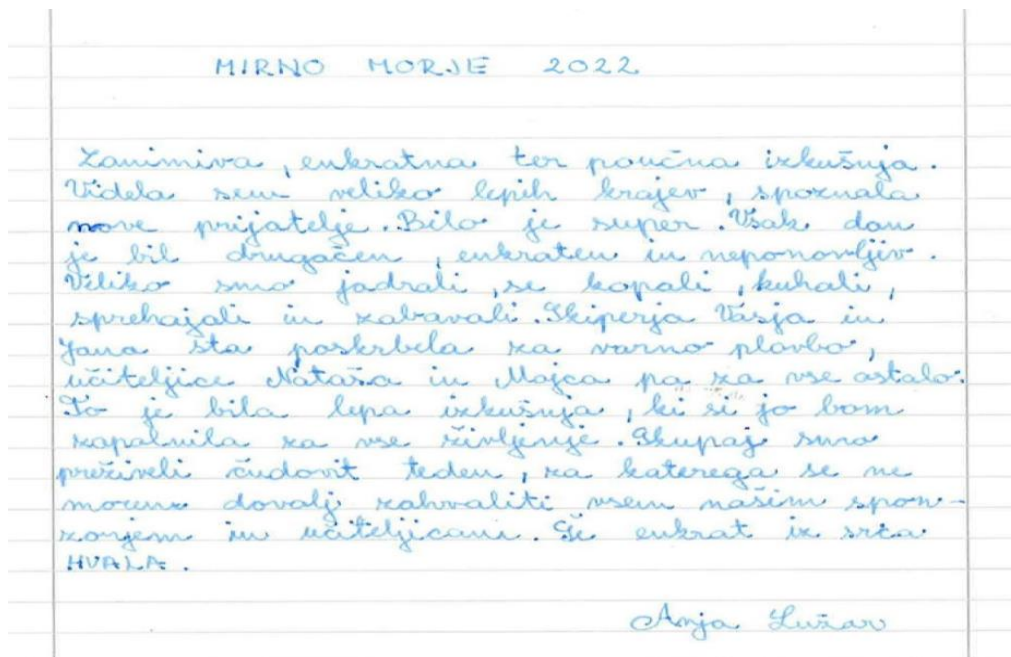 MIRNO MORJE 2022
Zanimiva, enkratna ter poučna izkušnja.
Videla sem veliko lepih krajev, spoznala
nove prijatelje. Bilo je super. Vsak dan
je bil drugačen, enkraten in neponovljiv.
Veliko smo jadrali, se kopali, kuhali,
sprehajali in zabavali. Skiperja Vasja in
Jana sta poskrbela za varno plovbo,
učiteljice Nataša in Mojca pa za vse ostalo.
To je bila lepa izkušnja, ki si jo bom
zapolnila za vse življenje. Skupaj smo
preživeli čudovit teden, za katerega se ne
moremo dovolj zahvaliti vsem našim spon-
zorjem in učiteljicam. Še enkrat iz srca
HVALA.
Anja Lužar